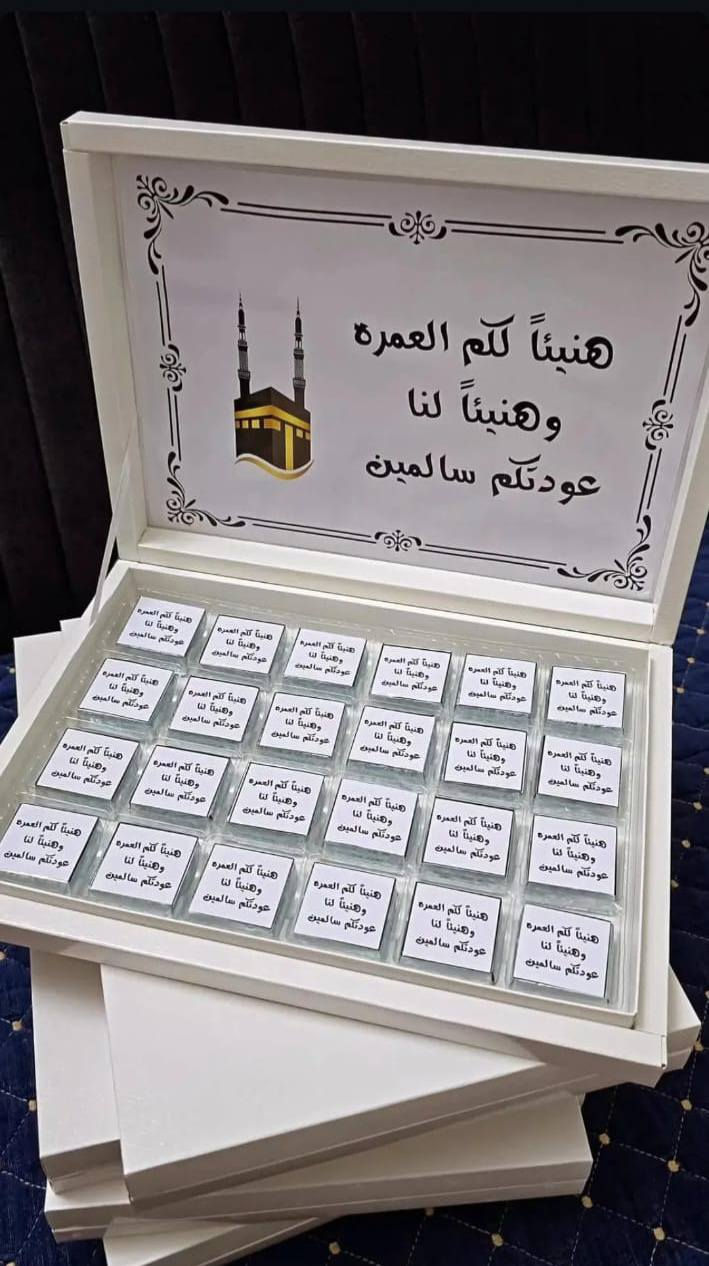 هنيئاً لكم العمره
وهنيئاً لنا
عودتكم سالمين
هنيئاً لكم العمره
وهنيئاً لنا
عودتكم سالمين
هنيئاً لكم العمره
وهنيئاً لنا
عودتكم سالمين
هنيئاً لكم العمره
وهنيئاً لنا
عودتكم سالمين
هنيئاً لكم العمره
وهنيئاً لنا
عودتكم سالمين
هنيئاً لكم العمره
وهنيئاً لنا
عودتكم سالمين
هنيئاً لكم العمره
وهنيئاً لنا
عودتكم سالمين
هنيئاً لكم العمره
وهنيئاً لنا
عودتكم سالمين
هنيئاً لكم العمره
وهنيئاً لنا
عودتكم سالمين
هنيئاً لكم العمره
وهنيئاً لنا
عودتكم سالمين
هنيئاً لكم العمره
وهنيئاً لنا
عودتكم سالمين
هنيئاً لكم العمره
وهنيئاً لنا
عودتكم سالمين
هنيئاً لكم العمره
وهنيئاً لنا
عودتكم سالمين
هنيئاً لكم العمره
وهنيئاً لنا
عودتكم سالمين
هنيئاً لكم العمره
وهنيئاً لنا
عودتكم سالمين
هنيئاً لكم العمره
وهنيئاً لنا
عودتكم سالمين
هنيئاً لكم العمره
وهنيئاً لنا
عودتكم سالمين
هنيئاً لكم العمره
وهنيئاً لنا
عودتكم سالمين
هنيئاً لكم العمره
وهنيئاً لنا
عودتكم سالمين
هنيئاً لكم العمره
وهنيئاً لنا
عودتكم سالمين
هنيئاً لكم العمره
وهنيئاً لنا
عودتكم سالمين
هنيئاً لكم العمره
وهنيئاً لنا
عودتكم سالمين
هنيئاً لكم العمره
وهنيئاً لنا
عودتكم سالمين
هنيئاً لكم العمره
وهنيئاً لنا
عودتكم سالمين
هنيئاً لكم العمره
وهنيئاً لنا
عودتكم سالمين